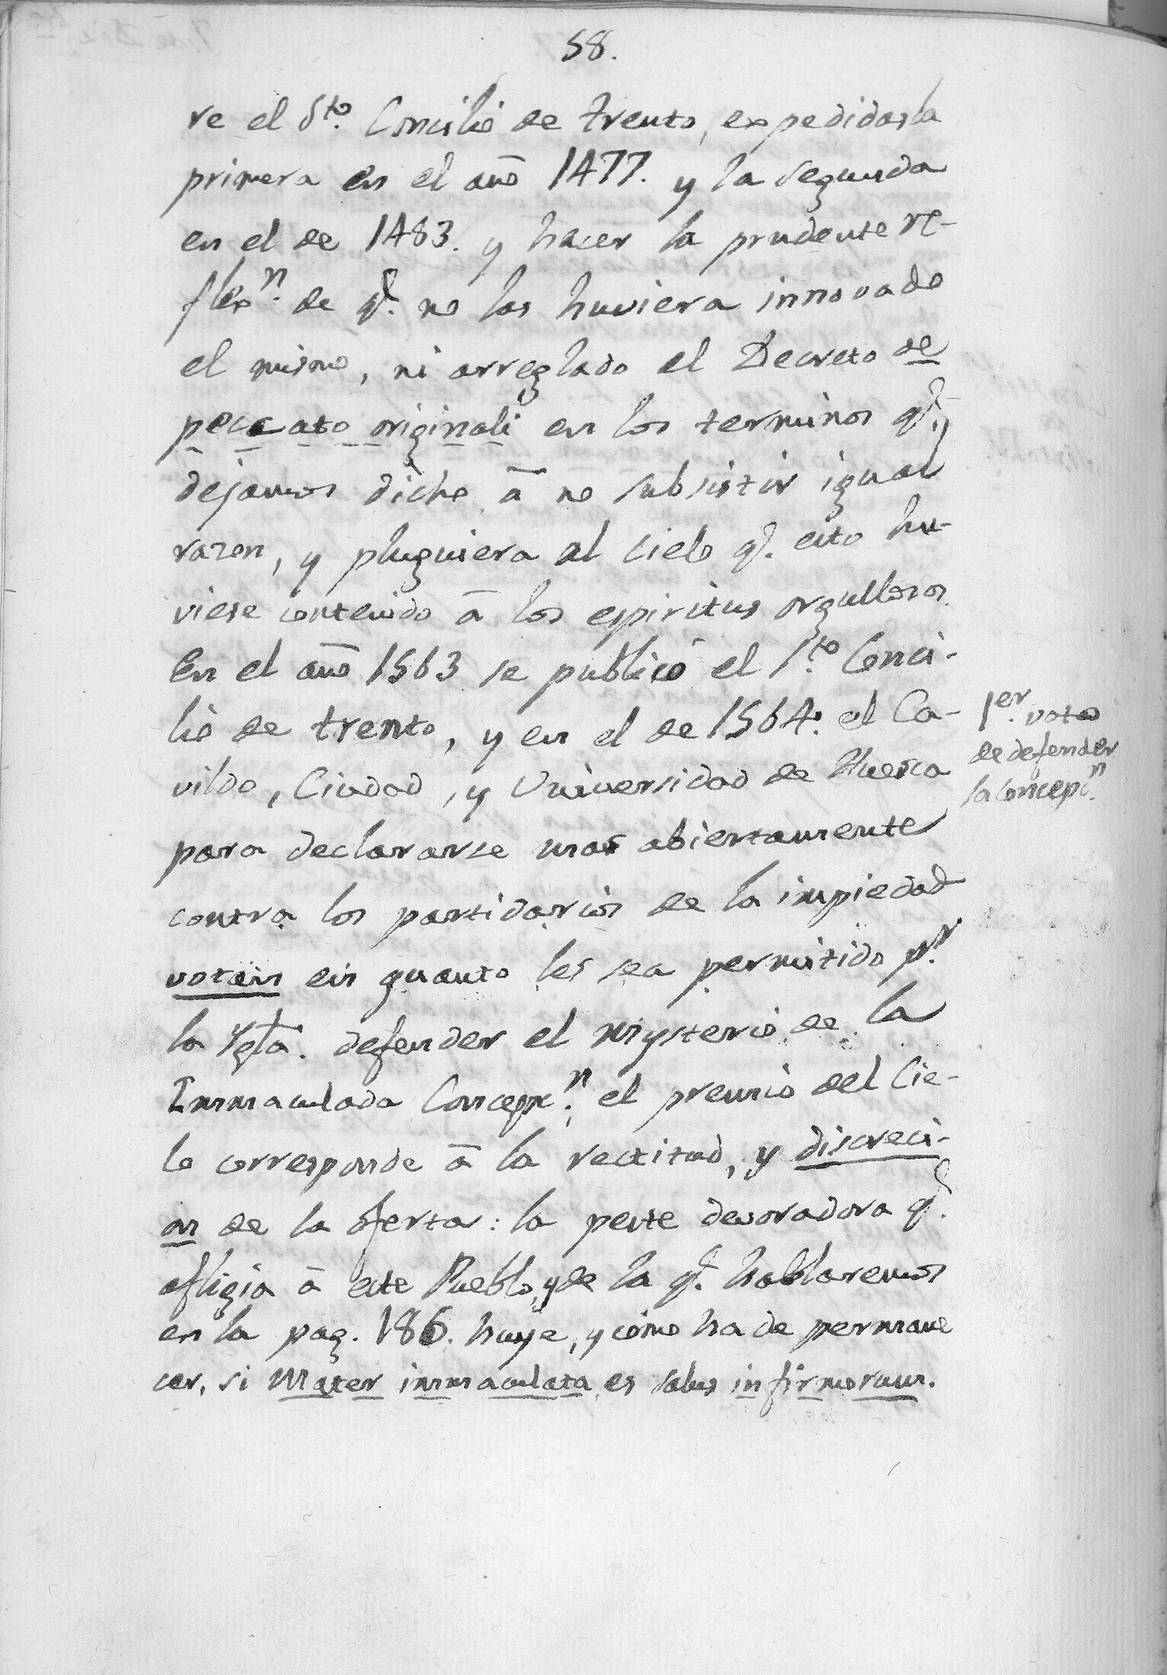 58.
re el Sto. Concilio de Trento, expedidas la
primera en el año 1477. y la segunda
en el de 1483. y hacer la prudente re-
flexn. de q. no las huviera innovado
el mismo, ni arreglado el Decreto de
peccato originali en los terminos q.
dejamos dicho â no subsistir igual
razon, y pluguiera al cielo q. esto hu-
viese contenido â los espiritus orgullosos.
En el año 1563 se publicó el Sto. Conci-
lio de Trento, y en el de 1564. el Ca-
vildo, Ciudad, y Universidad de Huesca
para declararse mas abiertamente
contra los partidarios de la impiedad
votan en quanto les sea permitido pr.
la Ygla. defender el Mysterio de la
Immaculada Concepn. el premio del Cie-
lo corresponde â la rectitud, y discreci-
on de la oferta: la peste devoradora q.
afligia â este Pueblo, y de la q. hablaremos
en la pag. 186. huye, y como ha de permane
cer, si Mater immaculata es salus infirmorum.
1er. voto
de defender
la Concepcn.